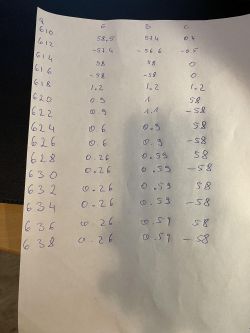 q
610 a b c
612 58,5 57,4 0.4
614 -57,4 -56,6 -0.5
616 58 58 0
618 -58 -58 0
620 1,2 1,2 1,2
622 0,9 1.1 58
624 0,9 1,1 -58
626 0,6 0,9 58
628 0,6 0,9 -58
630 0.26 0.59 58
632 0.26 0.59 -58
634 0.26 0.59 58
636 0.26 0.59 -58
638 0.26 0.59 58
0.26 0.59 -58